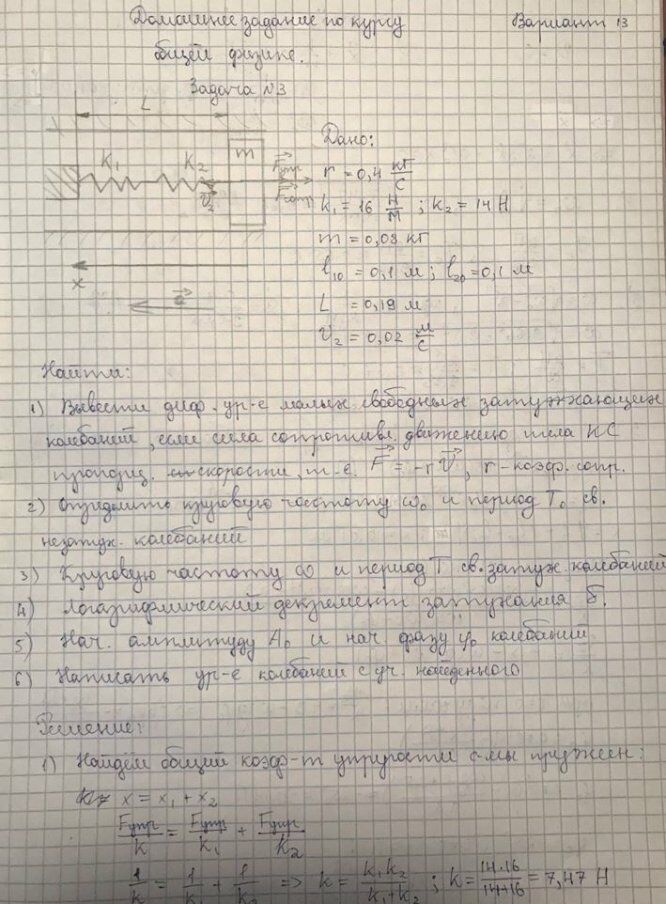 Домашнее задание по курсу Вариант 13
общей физике.
Задача №3
L
Дано:
K₁ K₂ m
V₂
x
r = 0,4 кг/с
k₁ = 16 Н/м ; k₂ = 14 Н
m = 0,08 кг
l₁₀ = 0,1 м ; l₂₀ = 0,1 м
L = 0,19 м
V₂ = 0,02 м/с
Найти:
1) Вывести диф. ур-е малых свободных затухающих
колебаний, если сила сопротивл. движению тела КС
пропорц. скорости, т.е. F = -rV, r - коэф. сопр.
2) Определить круговую частоту ω₀ и период T₀ св.
незатух. колебаний
3) Круговую частоту ω и период T св. затух. колебаний
4) Логарифмический декремент затухания δ.
5) Нач. амплитуду A₀ и нач. фазу φ₀ колебаний
6) Написать ур-е колебаний с уч. найденного
Решение:
1) Найдём общий коэф-т упругости с-мы пружин:
x = x₁ + x₂
Fупр/k = Fупр/k₁ + Fупр/k₂
1/k = 1/k₁ + 1/k₂ => k = k₁k₂/k₁+k₂ ; k = 14·16/14+16 = 7,47 Н